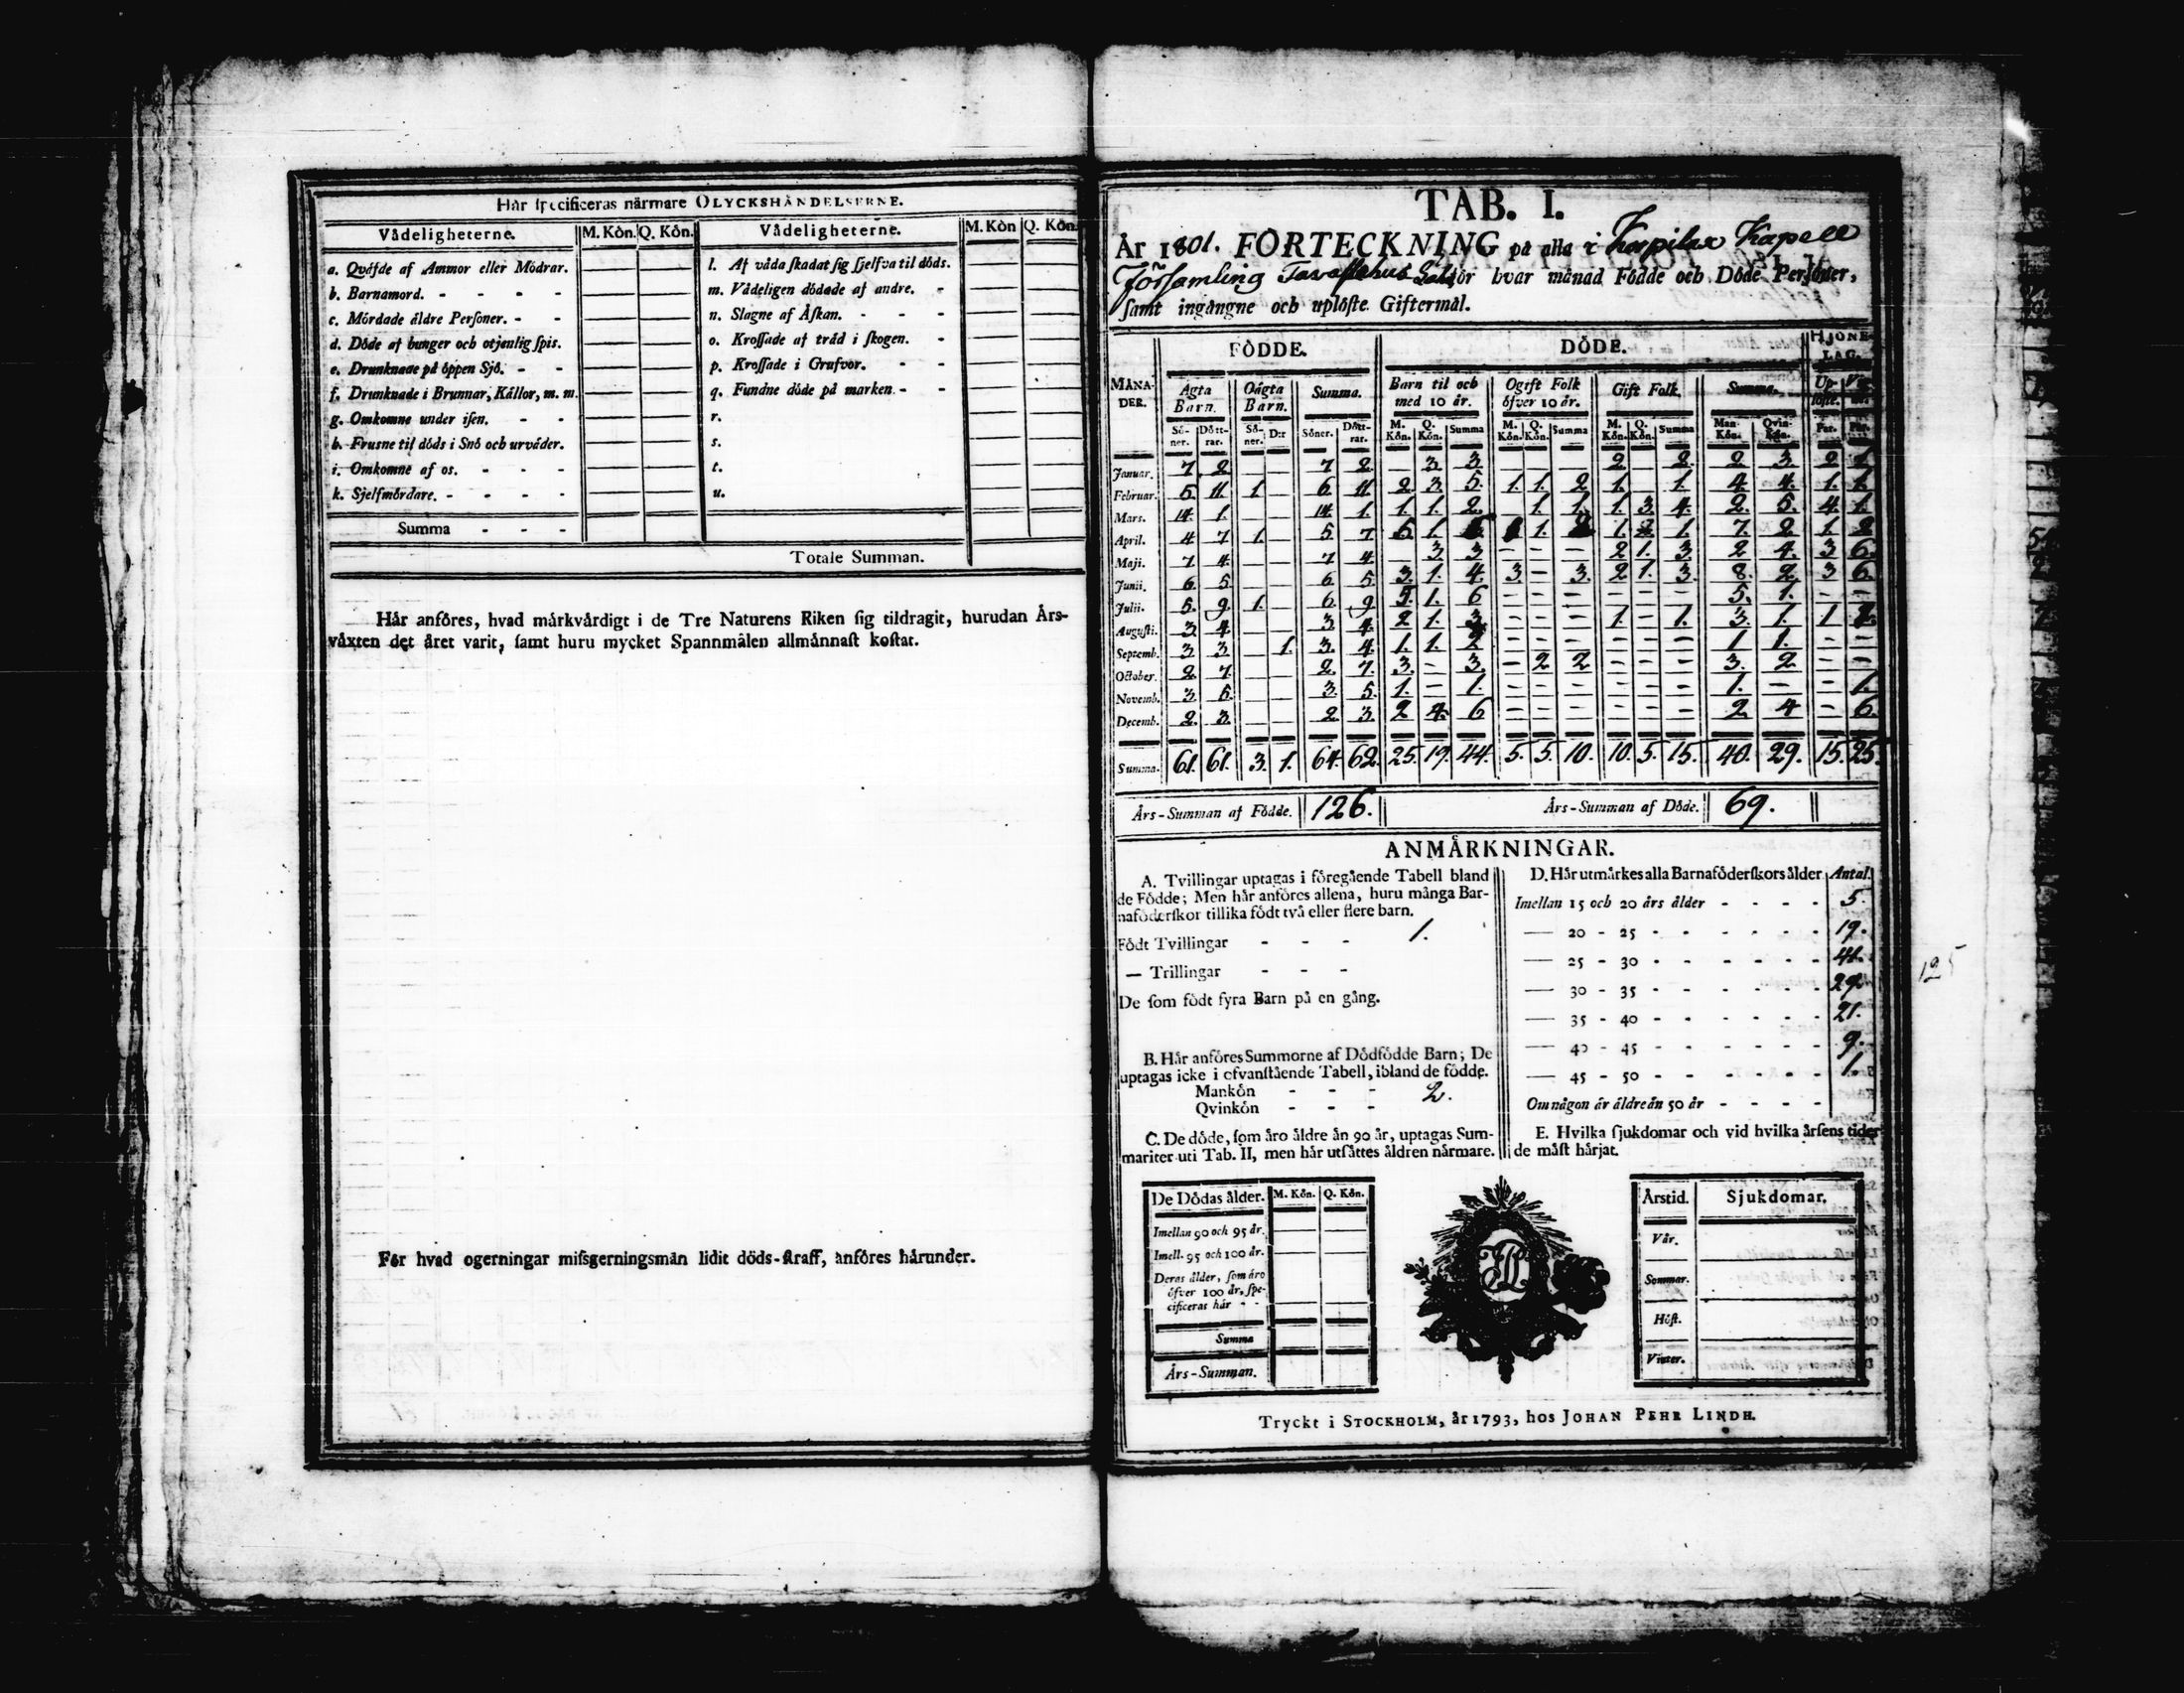 Här specificeras närmare OLYCKSHÄNDELSERNE.
Vådeligheterne. M. Kön. Q. Kön. Vådeligheterne. M. Kön Q. Kön.
a. Qväfde af Ammor eller Mödrar. l. Af våda skadat sig sjelfva til döds.
b. Barnamord. - - - - m. Vådeligen dödade af andre. -
c. Mördade äldre Personer. - - n. Slagne af Åskan. - - -
d. Döde af hunger och otjenlig spis. o. Krossade af träd i skogen. -
e. Drunknade på öppen Sjö. - - p. Krossade i Grufvor. - -
f. Drunknade i Brunnar, Källor, m. m. q. Fundne döde på marken. - -
g. Omkomne under isen. - - r.
h. Frusne til döds i Snö och urväder. s.
i. Omkomne af os. - - - t.
k. Sjelfmördare. - - - - u.
Summa - - -
Totale Summan.
Här anföres, hvad märkvärdigt i de Tre Naturens Riken sig tildragit, hurudan Års-
växten det året varit, samt huru mycket Spannmålen allmännast kostat.
För hvad ogerningar missgerningsmän lidit döds-straff, anföres härunder.
TAB. I.
År 1801. FÖRTECKNING på alla i Kapell
Församling Tavastehus för hvar månad Födde och Döde Personer,
samt ingångne och uplöste Giftermål.
FÖDDE. DÖDE. HJONE-
LAG.
MÅNA-
DER. Ägta
Barn. Oägta
Barn. Summa. Barn til och
med 10 år. Ogift Folk
öfver 10 år. Gift Folk. Summa. Up-
löste.
Sö-
ner. Dött-
rar. Sö-
ner. D:r Söner. Dött-
rar. M.
Kön. Q.
Kön. Summa M.
Kön. Q.
Kön. Summa M.
Kön. Q.
Kön. Summa Man-
Kön. Qvin-
Kön. Par. Par.
Januar. 7 2 — — 7 2 — 3 3 2 — 2 2 3 2 1
Februar. 5 11 1 — 6 11 2 3 5 1 1 2 1 1 4 4 1 1
Mars. 14 1 — — 14 1 1 1 2 1 1 1 3 4 2 5 4 1
April. 4 7 1 — 5 7 1 1 1 1 7 2 1 2
Maji. 7 4 — — 7 4 — 3 3 — — — 2 1 3 2 4 3 6
Junii. 6 5 — — 6 5 3 1 4 3 — 3 2 1 3 8 2 3 6
Julii. 5 9 1 — 6 9 5 1 6 — — — — — — 5 1 — —
Augusti. 3 4 — — 3 4 2 1 3 — — — 1 — 1 3 1 1
Septemb. 3 3 — 1 3 4 1 1 2 — — — — — — 1 1 — —
October. 2 7 — — 2 7 3 — 3 — 2 2 — — — 3 2 — —
Novemb. 3 5 — — 3 5 1 — 1 — — — — — — 1 — — 1
Decemb. 2 3 — — 2 3 2 4 6 — — — — — — 2 4 — 6
Summa. 61. 61. 3. 1. 64. 62. 25. 19. 44. 5. 5. 10. 10. 5. 15. 40. 29. 15. 25.
Års-Summan af Födde. 126. Års-Summan af Döde. 69.
ANMÄRKNINGAR.
A. Tvillingar uptagas i föregående Tabell bland
de Födde; Men här anföres allena, huru många Bar-
naföderskor tillika födt två eller flere barn.
Födt Tvillingar - - - 1.
— Trillingar - - -
De som födt fyra Barn på en gång.
B. Här anföres Summorne af Dödfödde Barn; De
uptagas icke i ofvanstående Tabell, ibland de födde.
Mankön - - - 2.
Qvinkön - - -
C. De döde, som äro äldre än 90 år, uptagas Sum-
mariter uti Tab. II, men här utsättes åldren närmare.
D. Här utmärkes alla Barnaföderskors ålder Antal.
Imellan 15 och 20 års ålder - - - - 5.
— 20 - 25 - - - - - - 19.
— 25 - 30 - - - - - - 41.
— 30 - 35 - - - - - - 29.
— 35 - 40 - - - - - - 21.
— 40 - 45 - - - - - - 9.
— 45 - 50 - - - - - - 1.
Om någon är äldre än 50 år - - - -
125
E. Hvilka sjukdomar och vid hvilka årsens tider
de mäst härjat.
De Dödas ålder. M. Kön. Q. Kön.
Imellan 90 och 95 år.
Imell. 95 och 100 år.
Deras ålder, som äro
öfver 100 år, spe-
cificeras här - -
Summa
Års-Summan.
Årstid. Sjukdomar.
Vår.
Sommar.
Höst.
Vinter.
Tryckt i STOCKHOLM, år 1793, hos JOHAN PEHR LINDH.